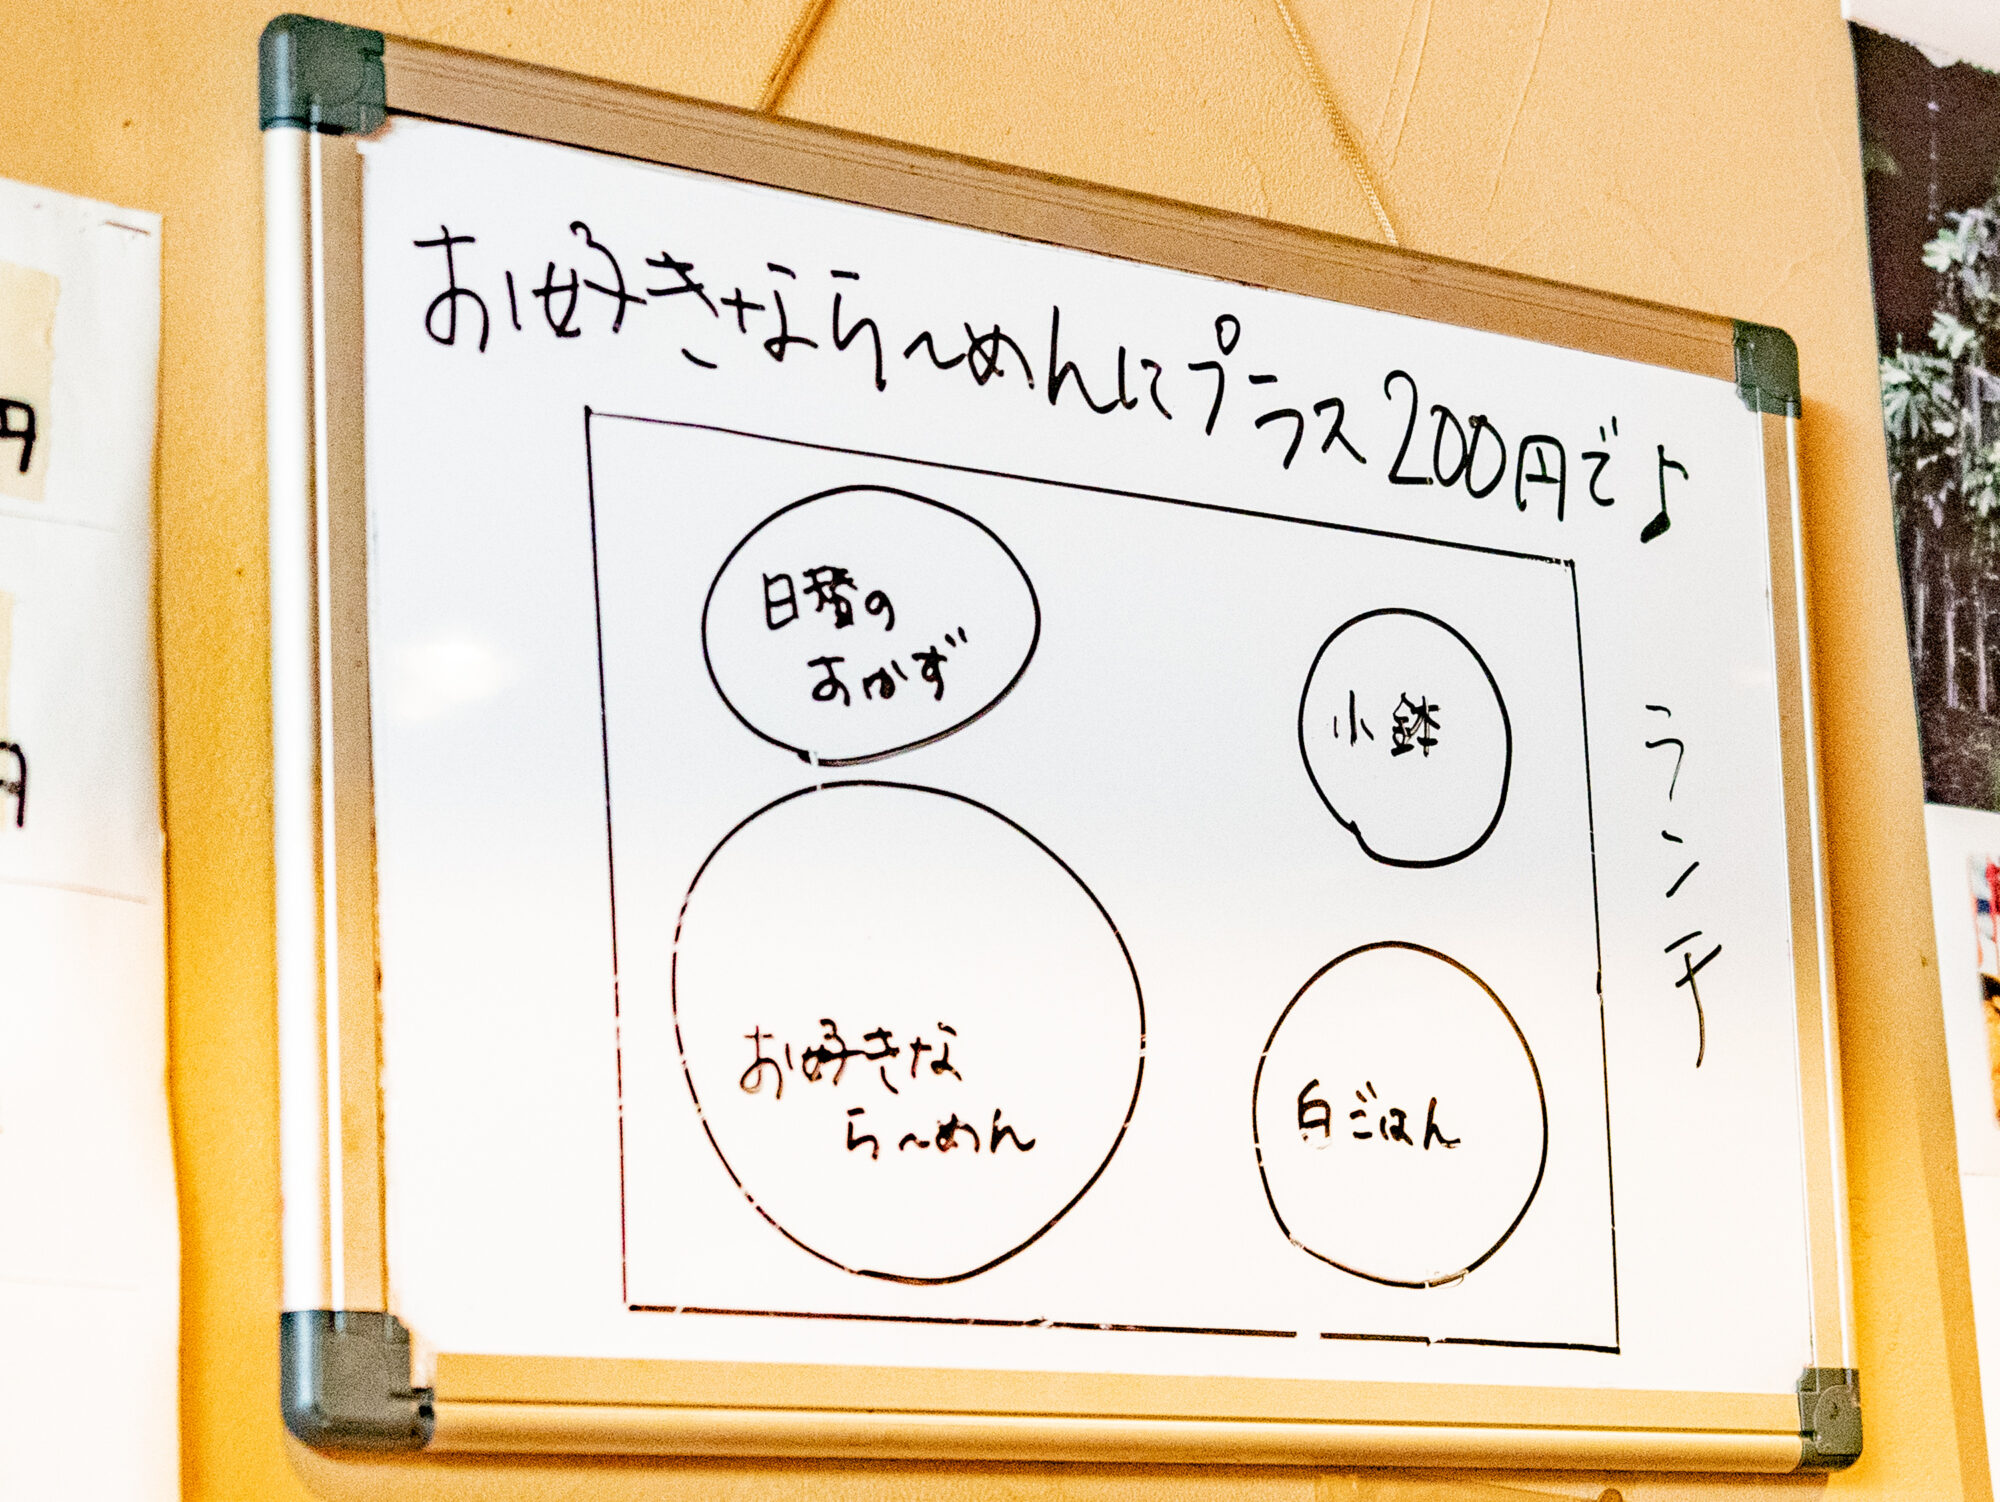 お好きならーめんにプラス200円で♪
日替の
おかず
小鉢
お好きな
らーめん
白ごはん
ランチ
円
円